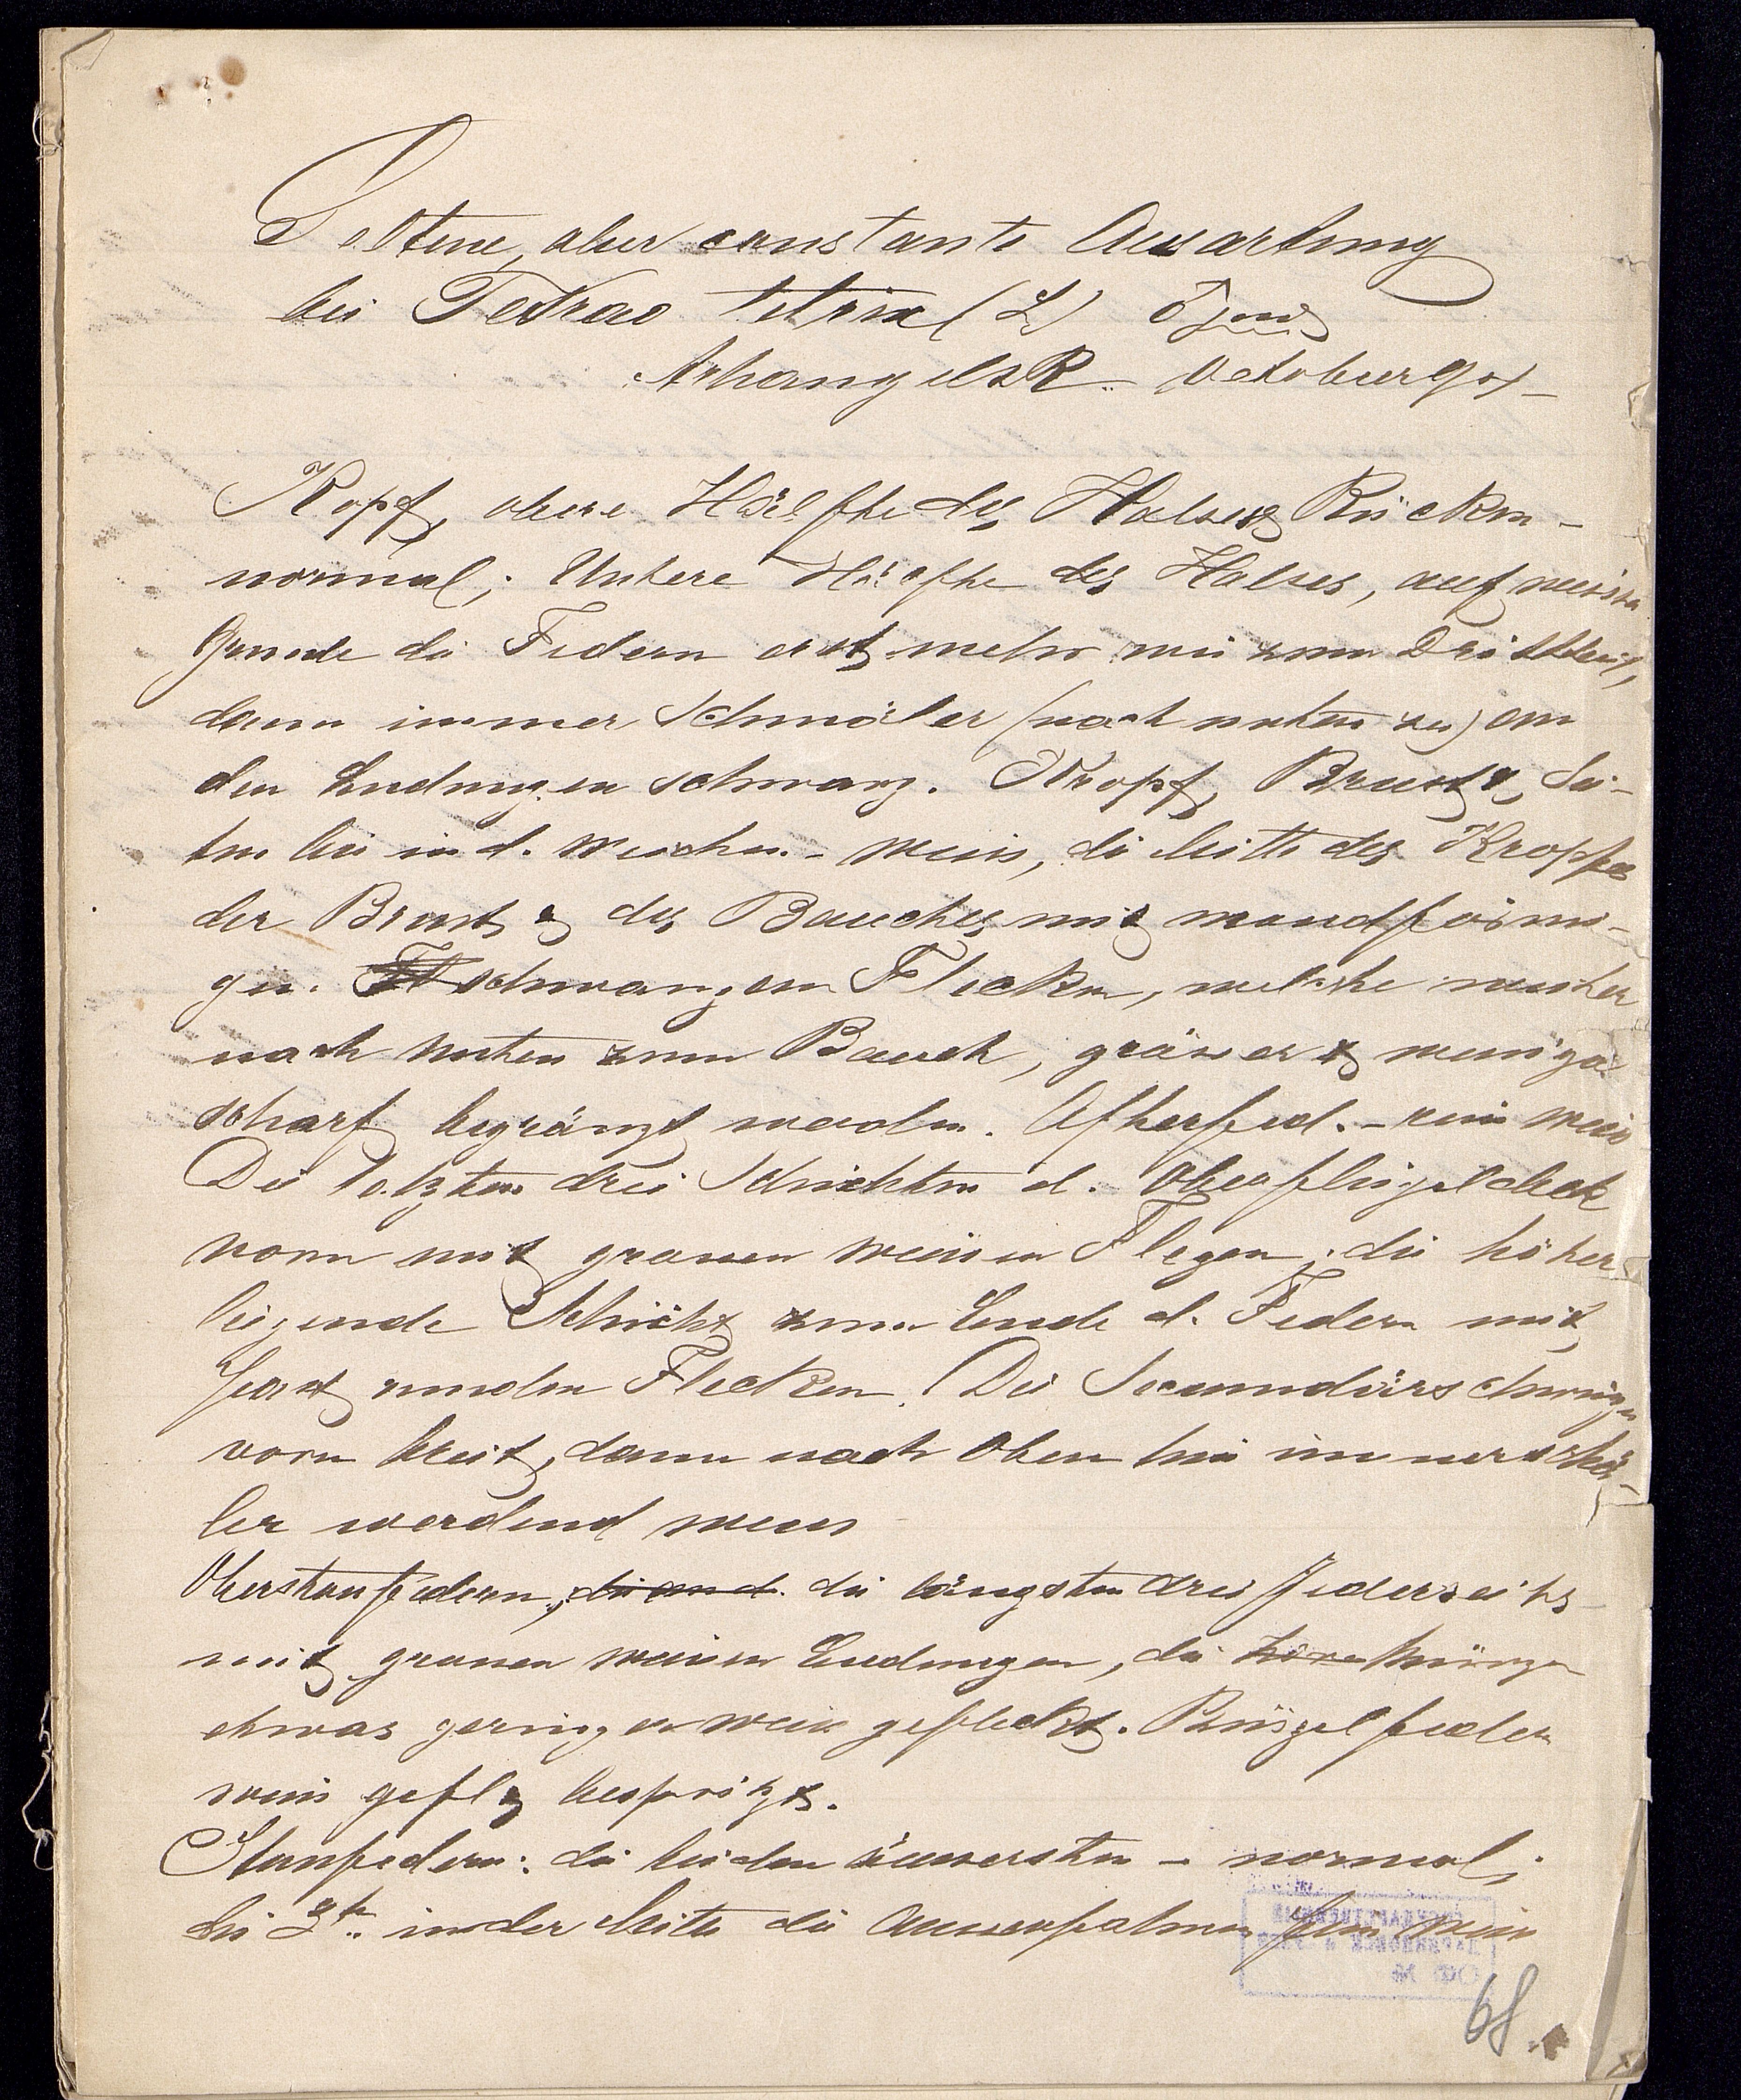 Seltene, aber constante Ausartung
bei Tetrao tetrix (L) ♂ juv
Arhangelsk. October 901 –
Kopf, obere Hälfte des Halses & Rücken –
normal; Untere Hälfte des Halses, auf weiss
Grunde die Federn erst mehr wie zum Drittteil,
dann immer schmäler (nach unten zu) an
den Endungen schwarz. Kropf, Brust &, Sei-
ten bis in d. Weichen – weiss, die Mitte des Kropfes
der Brust & des Bauches mit mondförmi-
gen schwarzen Flecken, welche weiter
nach unten zum Bauch, grösser & weniger
scharf begränzt werden. Afterfed. – rein weiss
Die letzten drei Schichten d. Oberflügeldeck
vorn mit grossen weissen Flegen; die höher
liegende Schicht zum Ende d. Federn mit
fast runden Flecken. Die Secundärschwingen
vorn breit, dann nach Oben hin immer schmä-
ler werdend weiss
Oberstossfedern, die and. die längsten drei jederseits
mit grossen weissen Endungen, die übrigen
etwas geringer weiss gefleckt. Bürzelfedern
weiss gefl & bespritzt.
Stossfedern: die beiden äussersten – normal;
die 3te in der Mitte die Aussenfahnen weiss
68.